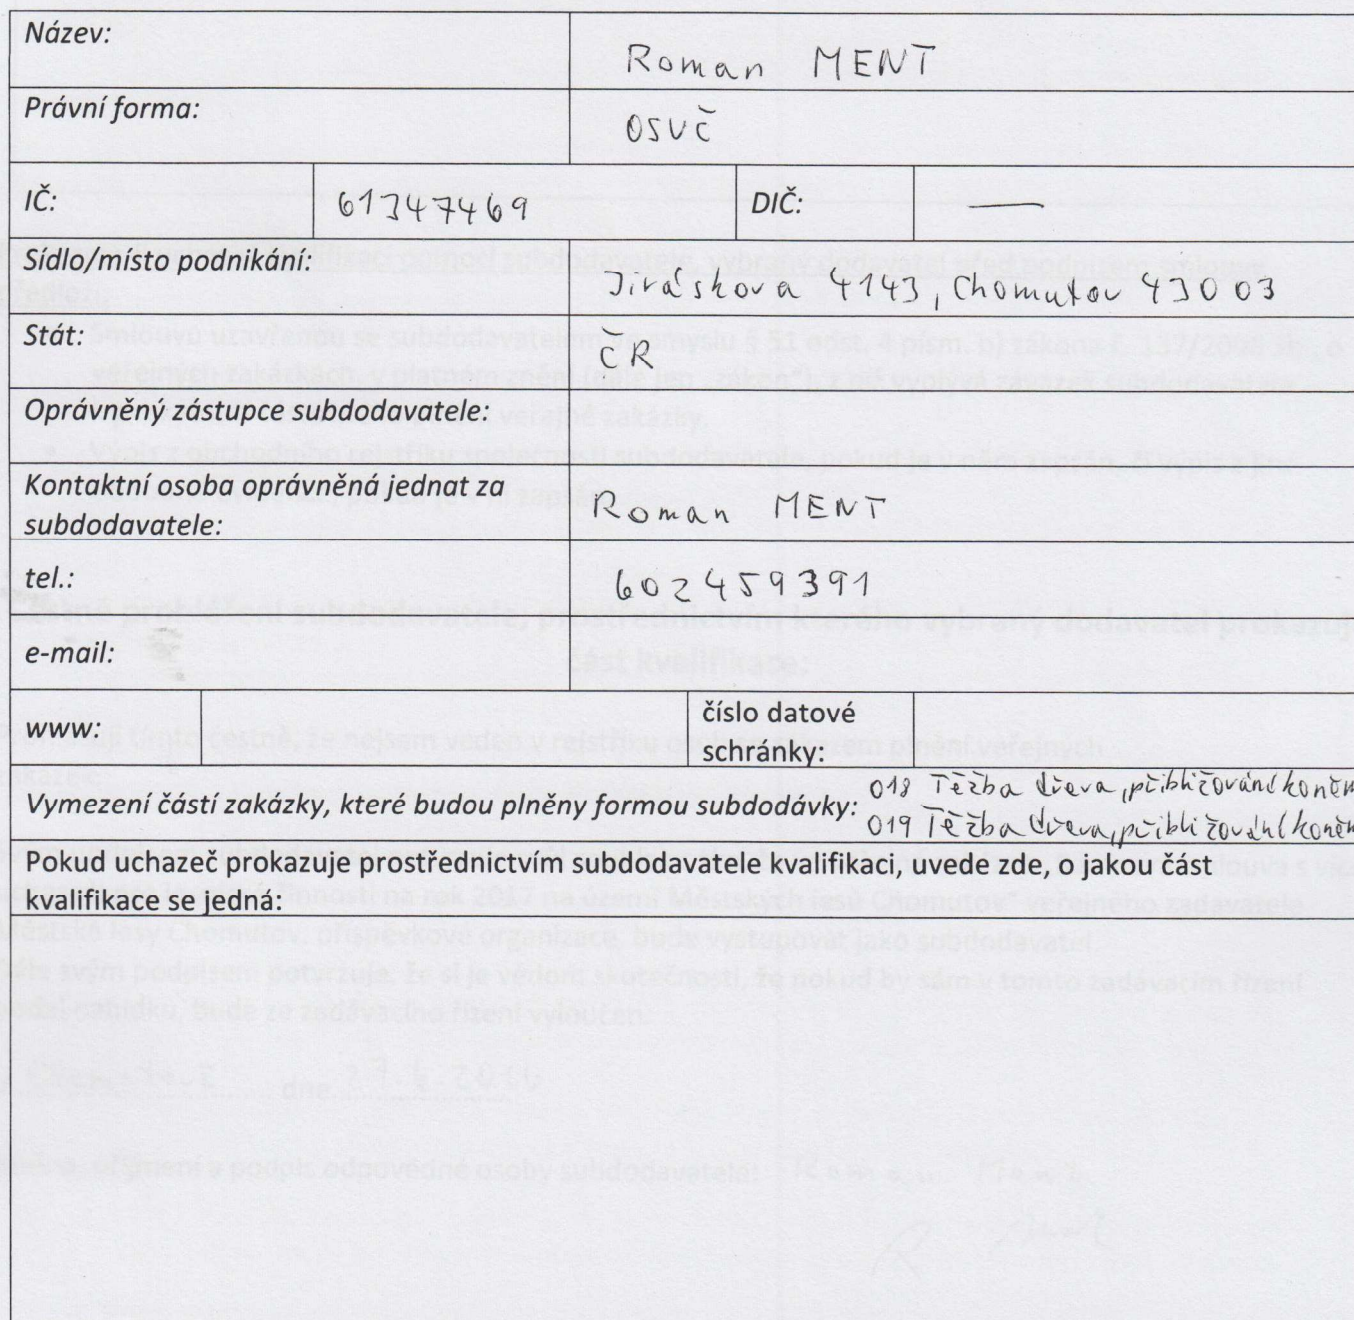 Název:
Roman MENT
Právní forma:
OSVČ
IČ: 61347469 DIČ: —
Sídlo/místo podnikání:
Jiráskova 4143, Chomutov 43003
Stát:
ČR
Oprávněný zástupce subdodavatele:
Kontaktní osoba oprávněná jednat za
subdodavatele:
Roman MENT
tel.:
602459391
e-mail:
www:
číslo datové
schránky:
Vymezení částí zakázky, které budou plněny formou subdodávky: 018 Těžba dřeva, přibližování koněm
019 Těžba dřeva, přibližování koněm
Pokud uchazeč prokazuje prostřednictvím subdodavatele kvalifikaci, uvede zde, o jakou část
kvalifikace se jedná: